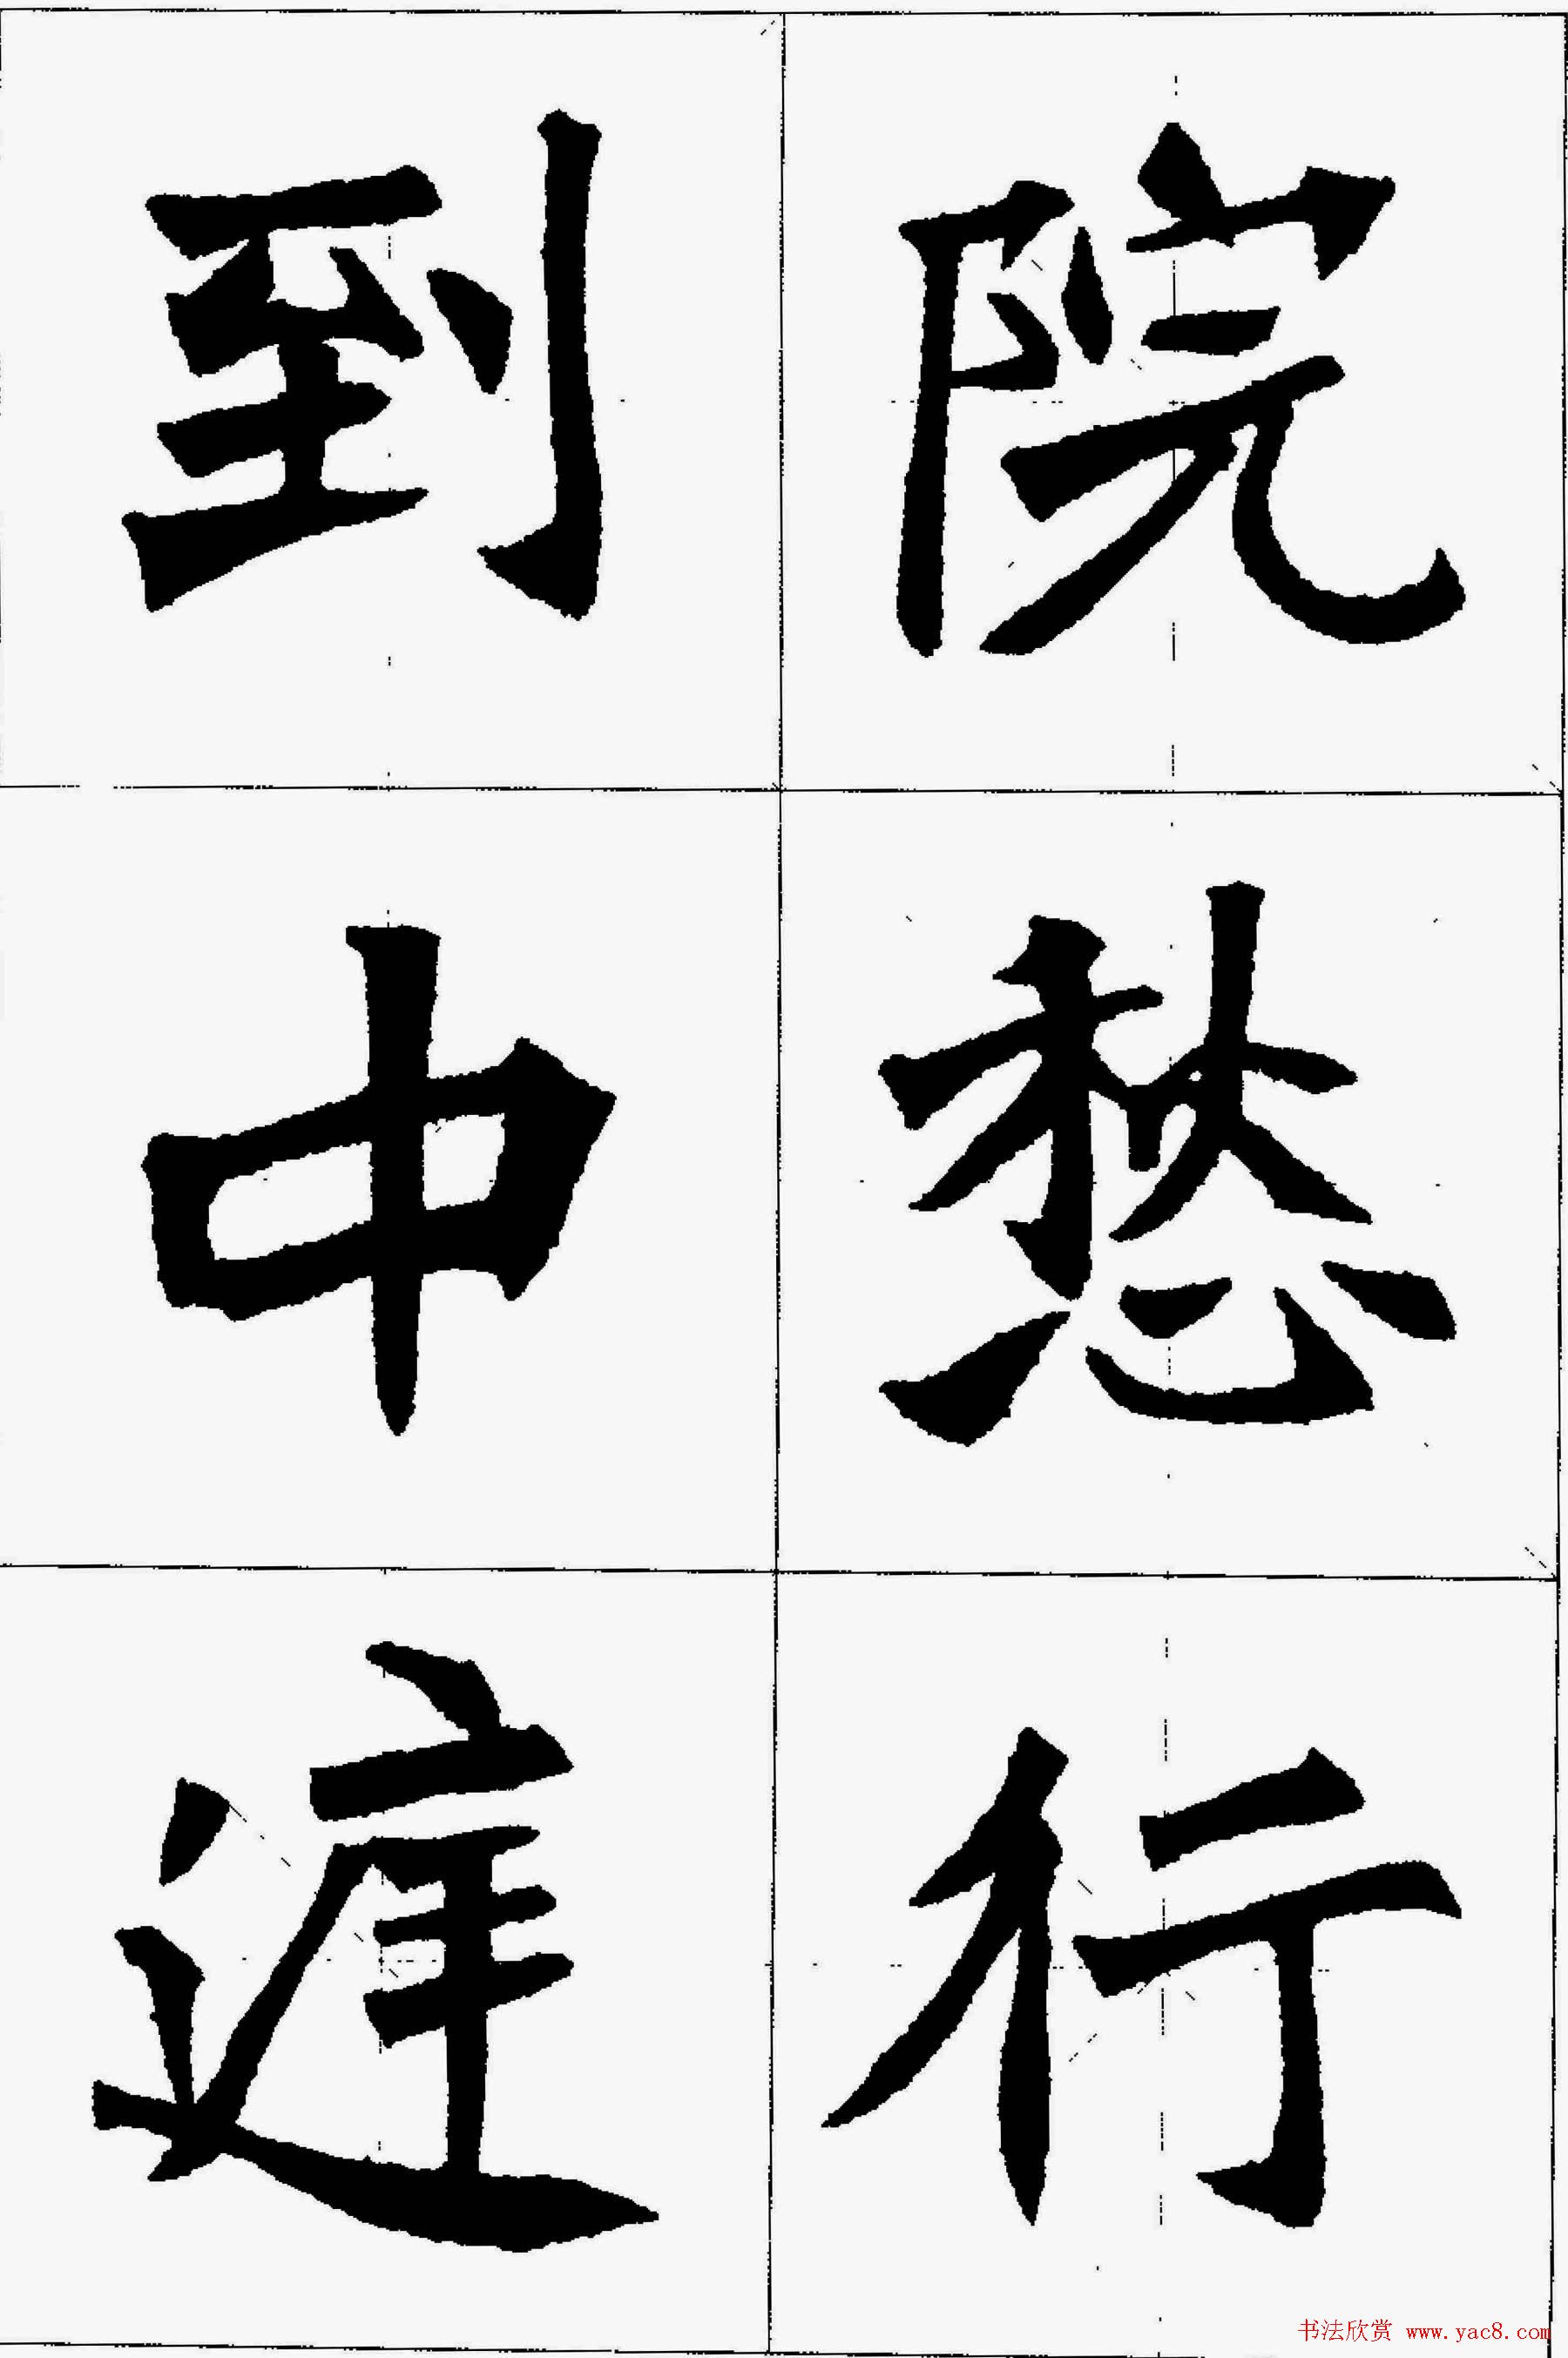 院愁行
到中庭
书法欣赏 www.yac8.com